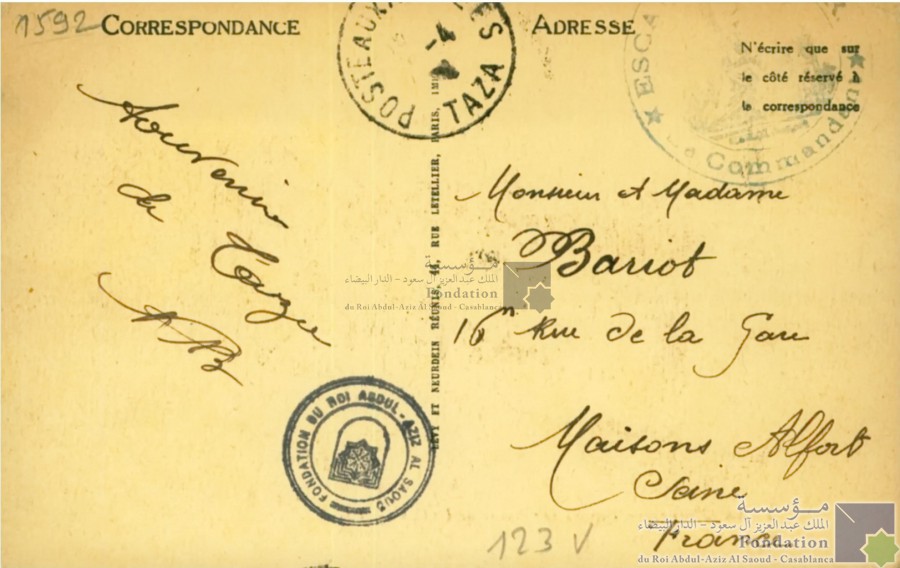 1592
CORRESPONDANCE
ADRESSE
N'écrire que sur
le côté réservé à
la correspondance
POSTE AUX ARMÉES
4
TAZA
ESCA
Commandant
Souvenir
de Taza
Monsieur et Madame
Bariot
16 Rue de la Gare
Maisons Alfort
Seine
France
LEVY ET NEURDEIN RÉUNIS, 44, RUE LETELLIER, PARIS, IMP
مؤسسة
الملك عبد العزيز آل سعود - الدار البيضاء
Fondation
du Roi Abdul-Aziz Al Saoud - Casablanca
FONDATION DU ROI ABDUL-AZIZ AL SAOUD
123 V
مؤسسة
الملك عبد العزيز آل سعود - الدار البيضاء
Fondation
du Roi Abdul-Aziz Al Saoud - Casablanca